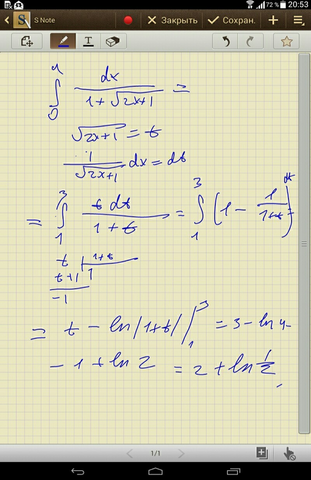 72 % 20:53
S Note
Закрыть
Сохран.
T
4
∫ dx / (1 + √2x+1) =
0
√2x+1 = t
1 / √2x+1 dx = dt
= ∫₁³ t dt / (1 + t) = ∫₁³ (1 - 1/(1+t)) dt
t | 1+t
t+1 | 1
-1
= t - ln|1+t| |₁³ = 3 - ln 4 -
- 1 + ln 2 = 2 + ln 1/2
1/1